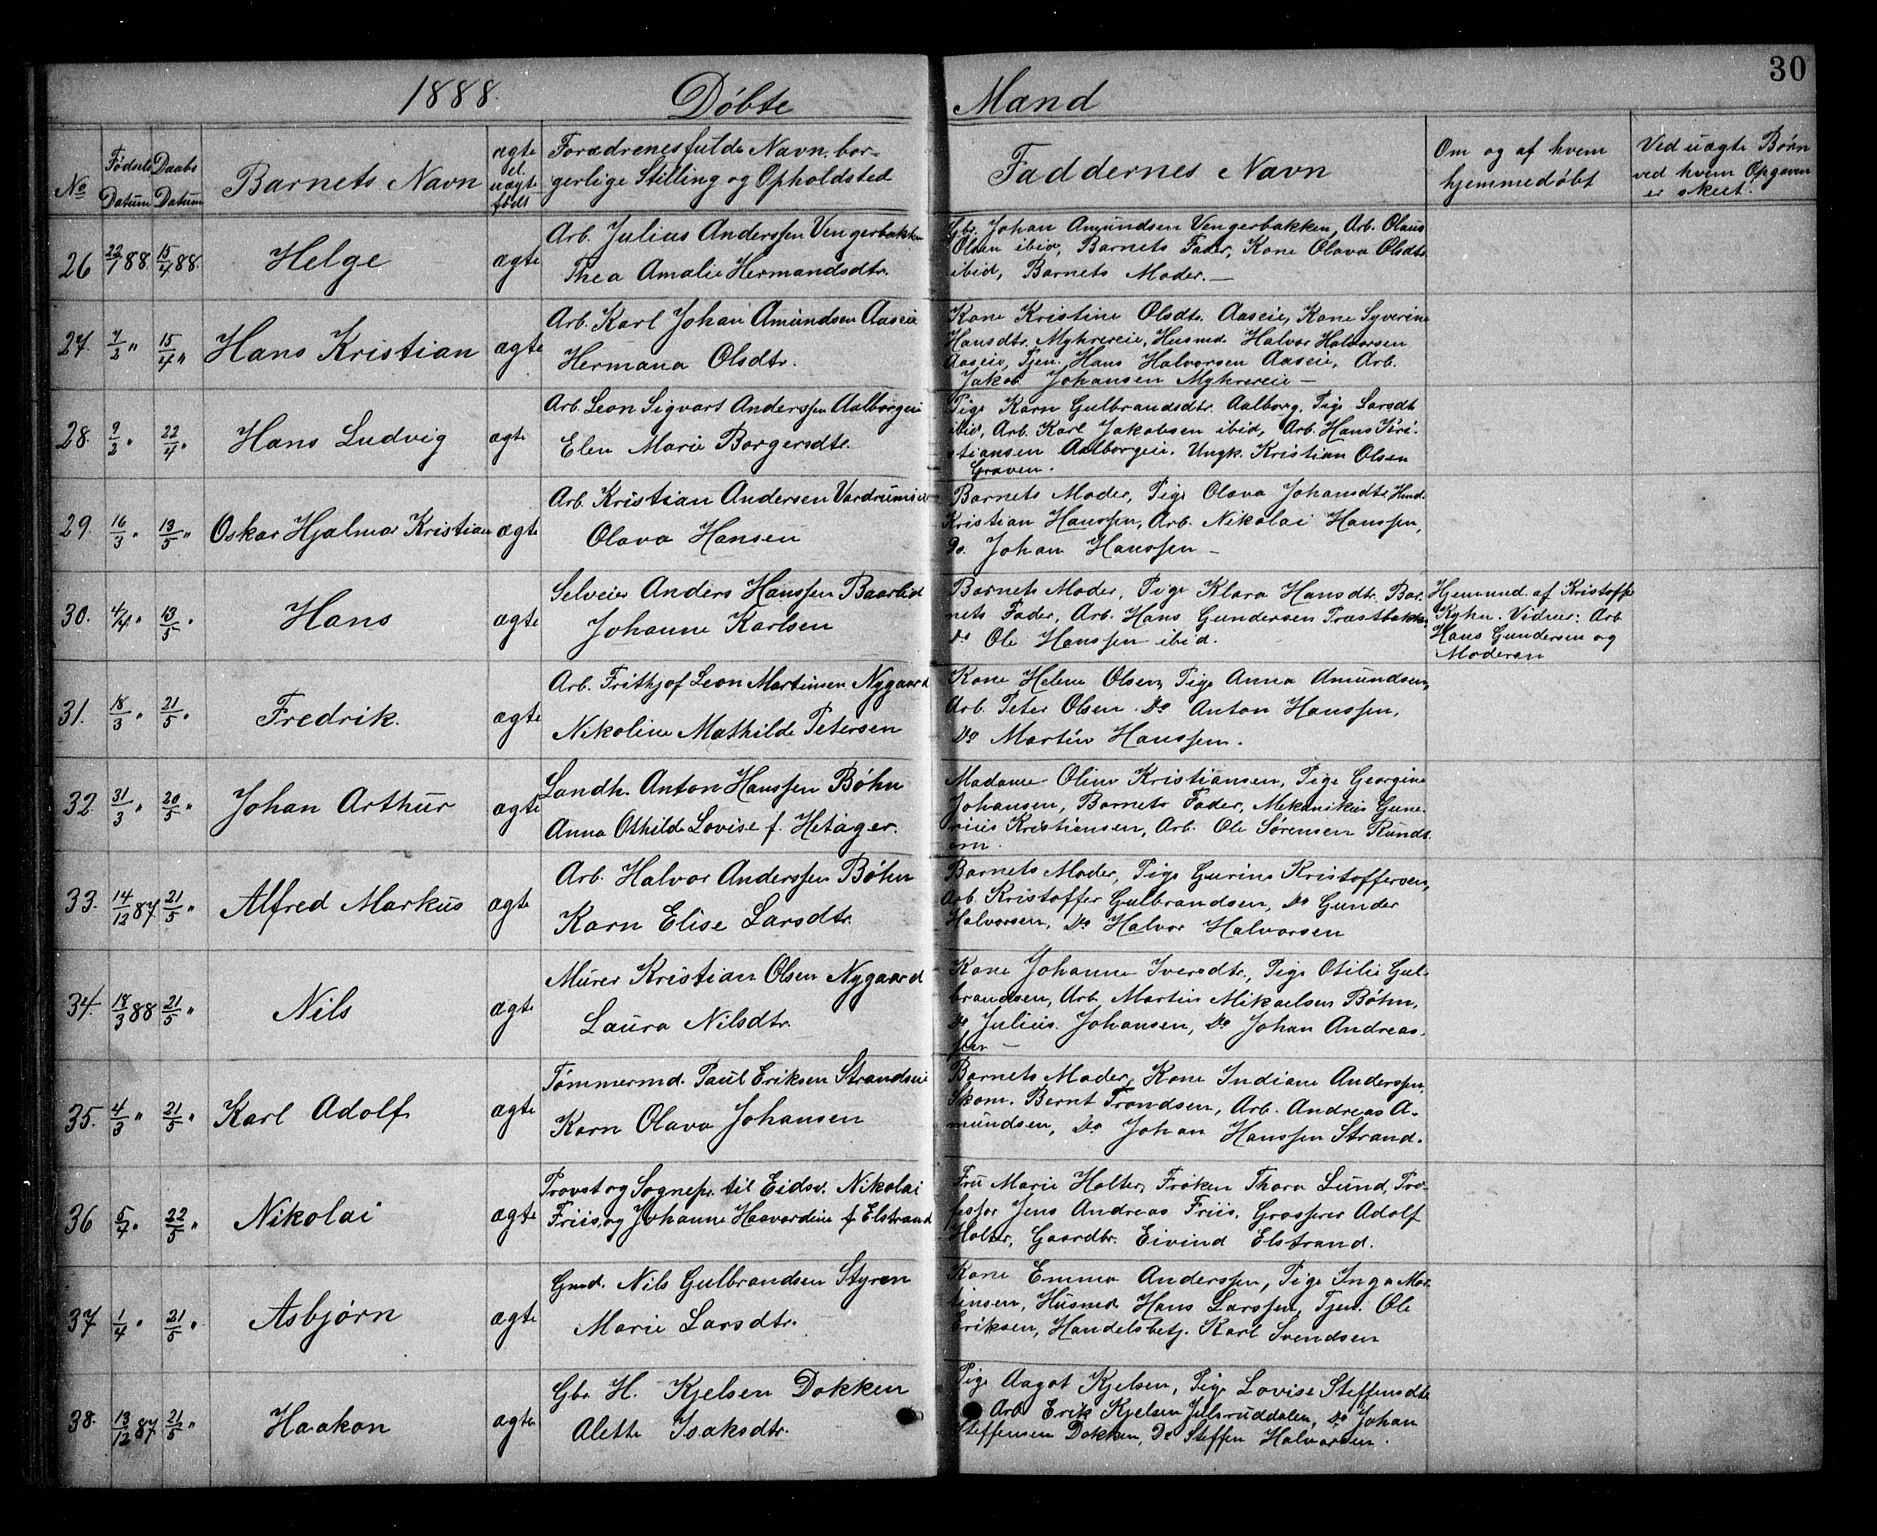 30
1888. Døbte Mænd
No
Fødsels Datum
Daabs Datum
Barnets Navn
ægte el. uægte født
Forældrenes fulde Navn, bor-
gerlige Stilling og Opholdsted
Faddernes Navn
Om og af hvem
hjemmedøbt
Ved uægte Børn
ved hvem Opgaven
er skeet.
26 22/1 88. 15/4 88. Helge ægte
Arb. Julius Anderssen Vengerbakken
Thea Amalie Hermandsdtr.
Gbr. Johan Amundsen Vengerbakken, Arb. Olaus
Olsen ibid, Barnets Fader, Kone Olava Olsdtr.
ibid, Barnets Moder. —
27. 7/2 " 15/4 " Hans Kristian ægte
Arb. Karl Johan Amundsen Aaseie
Hermana Olsdtr.
Kone Kristine Olsdtr. Aaseie, Kone Syverine
Hansdtr. Myhrereie, Husmd. Halvor Halvorsen
Aaseie, Tjen. Hans Halvorsen Aaseie, Arb.
Jakob Johansen Myhrereie —
28. 9/2 " 22/4 " Hans Ludvig ægte
Arb. Leon Sigvart Anderssen Aalborgeie
Elen Marie Borgersdtr.
Pige Karn Gulbrandsdtr. Aalborg, Pige Larsdt.
ibid, Arb. Karl Jakobsen ibid, Arb. Hans Kri-
stiansen Aalborgeie, Ungk. Kristian Olsen
Graven.
29. 16/3 " 13/5 " Oskar Hjalmar Kristian ægte
Arb. Kristian Andersen Vardrumseie
Olava Hansen
Barnets Moder, Pige Olava Johansdtr.
Kristian Hanssen, Arb. Nikolai Hanssen,
Do. Johan Hanssen —
30. 4/4 " 13/5 " Hans ægte
Selveier Anders Hanssen Baarlid
Johanne Karlsen
Barnets Moder, Pige Klara Hansdtr. Bar-
nets Fader, Arb. Hans Gundersen Præstbakken
do Ole Hanssen ibid.
Hjemmed. af Kristoffer
Kyhn. Vidner: Arb
Hans Gundersen og
Moderen
31. 18/3 " 21/5 " Fredrik. ægte
Arb. Frithjof Leon Martinsen Nygaard
Nikoline Mathilde Petersen
Kone Helene Olsen, Pige Anna Amundsen,
Arb. Peter Olsen. Do Anton Hanssen,
Do Martin Hanssen.
32 31/3 " 20/5 " Johan Arthur ægte
Landh. Anton Hanssen Bøhn
Anna Othilde Lovise f. Hetager.
Madame Oline Kristiansen, Pige Georgine
Johansen, Barnets Fader, Mekanikus Gune-
rius Kristiansen, Arb. Ole Sørensen Rundt.
33. 14/12 87 21/5 " Alfred Markus ægte
Arb. Halvor Anderssen Bøhn
Karn Elise Larsdtr.
Barnets Moder, Pige Gurine Kristoffersen,
Arb. Kristoffer Gulbrandsen, Do Gunder
Halvorsen, Do Halvor Halvorsen
34. 18/3 88 21/5 " Nils ægte
Murer Kristian Olsen Nygaard
Laura Nilsdtr.
Kone Johanne Iversdtr., Pige Otilie Gul-
brandsen, Arb. Martin Mikaelsen Bøhn,
Do Julius Johansen, Do Johan Andreas-
sen —
35. 4/3 " 21/5 " Karl Adolf ægte
Tømmermd. Paul Eriksen Strandseie
Karn Olava Johansen
Barnets Moder, Kone Indiane Anderssen,
Skom. Bernt Trondsen, Arb. Andreas A-
mundsen, Do Johan Hanssen Strand.
36 5/7 " 22/5 " Nikolai ægte
Provst og Sognepr. til Eidsv. Nikolai
Friis, og Johanne Haavardine f. Elstrand
Fru Marie Holter, Frøken Thora Lund, Pro-
fessor Jens Andreas Friis, Grosserer Adolf
Holter, Gaardbr. Eivind Elstrand.
37 1/4 " 21/5 " Asbjørn ægte
Gmd. Nils Gulbrandsen Styren
Marie Larsdtr.
Kone Emma Anderssen, Pige Inga Mar-
tinsen, Husmd. Hans Larssen, Tjen. Ole
Eriksen, Handelsbetj. Karl Svendsen
38. 13/12 87 21/5 " Haakon ægte
Gbr H. Kjelsen Dokken
Alette Isaksdtr.
Pige Aagot Kjelsen, Pige Lovise Steffensdtr.
Arb. Erik Kjelsen Julsruddalen, Do Johan
Steffensen Dokken, Do Steffen Halvorsen.